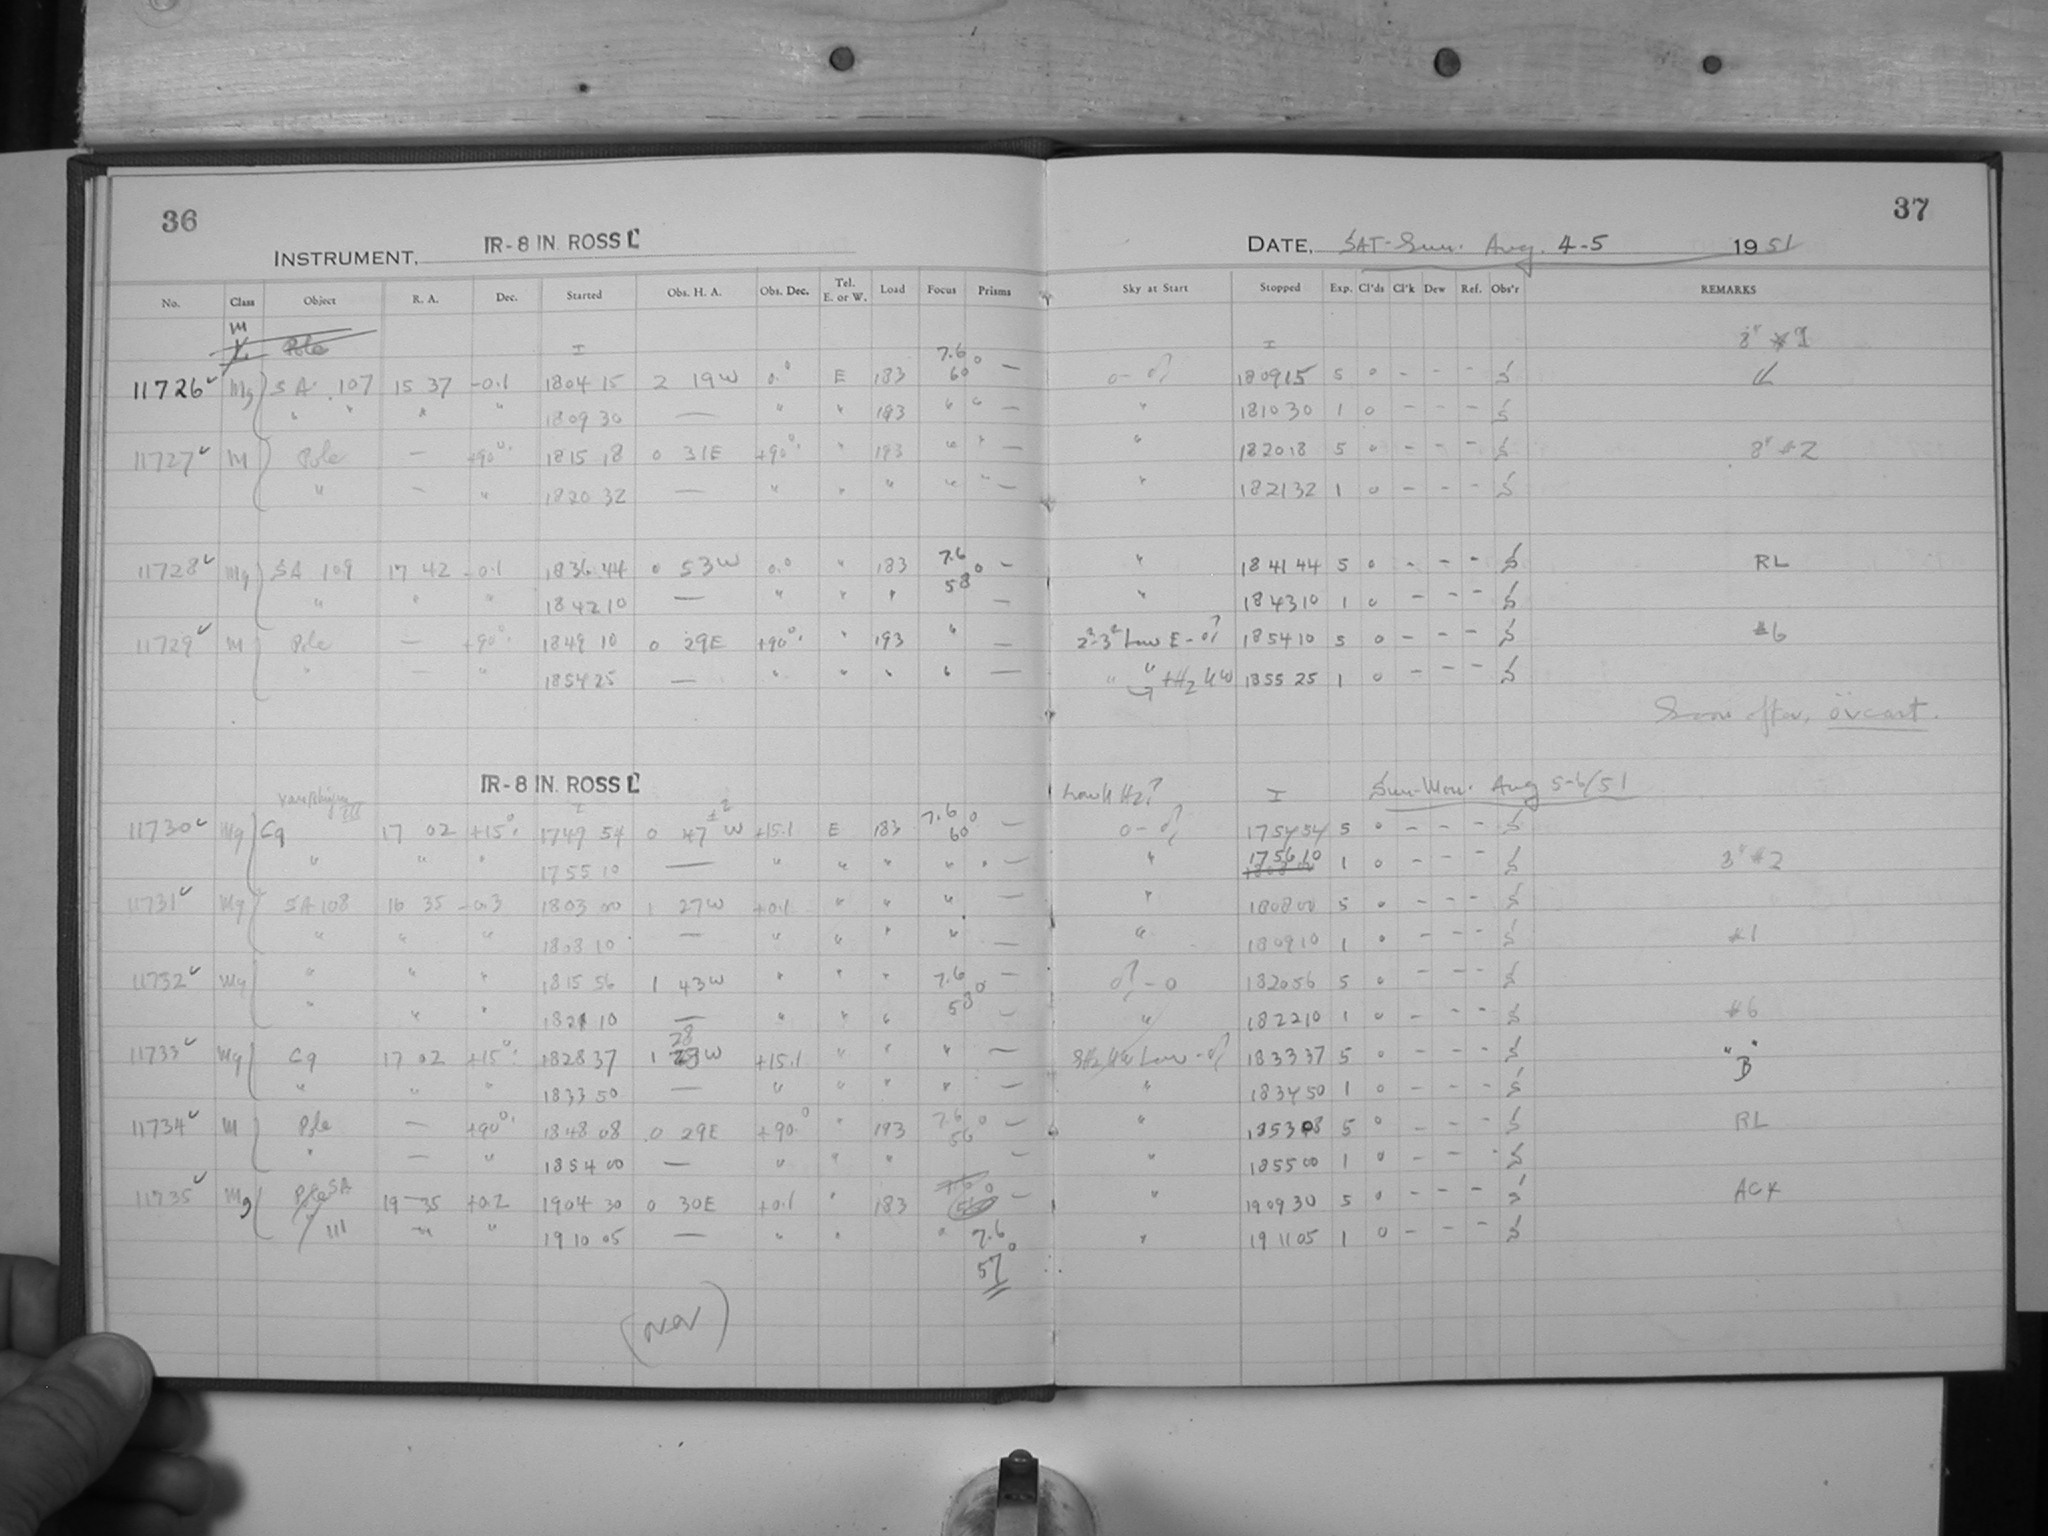 36
37
INSTRUMENT, IR-8 IN. ROSS L
DATE, SAT-Sun. Aug. 4-5 1951
No. Class Object R. A. Dec. Started Obs. H. A. Obs. Dec. Tel. E. or W. Load Focus Prisms Sky at Start Stopped Exp. Cl'ds Cl'k Dew Ref. Obs'r REMARKS
M
Pole I 7.6 I
11726 Mg SA 107 15 37 -0.1 1804 15 2 19W 0.0 E 183 60° — 180915 5 0 - - -
" " " " 1809 30 — " " 193 " " — " 181030 1 0 - - -
11727 M Pole — +90° 1815 18 0 31E +90° " 193 " " — " 182018 5 0 - - - 8" #2
" — " 1820 32 — " " " " " — " 182132 1 0 - - -
11728 Mg SA 109 17 42 -0.1 1836 44 0 53W 0.0 " 183 7.6 58° — " 184144 5 0 - - - RL
" " " 1842 10 — " " " — " 184310 1 0 - - -
11729 M Pole — +90° 1849 10 0 29E +90° " 193 " — Low E - 185410 5 0 - - - #6
" — " 1854 25 — " " " " — " " 1855 25 1 0 - - -
Soon after, ovcast.
IR-8 IN. ROSS L
I Sun-Mon. Aug 5-6/51
11730 Mg Cq 17 02 +15° 1749 54 0 47 W +15.1 E 183 7.6 60° — 175454 5 0 - - -
" " " 1755 10 — " " " " " — " 175610 1 0 - - - 3" #2
11731 Mg SA 108 16 35 -0.3 1803 00 1 27W +0.1 " " " — " 180800 5 0 - - -
" " " 1808 10 — " " " " — " 180910 1 0 - - - #1
11732 Mg " " " 1815 56 1 43W " " " 7.6 58° — 182056 5 0 - - -
" " " 1821 10 — " " " — " 182210 1 0 - - - #6
11733 Mg Cq 17 02 +15° 1828 37 1 28W +15.1 " " " — Low - 183337 5 0 - - - "B"
" " " 1833 50 — " " " " — " 183450 1 0 - - -
11734 M Pole — +90° 1848 08 0 29E +90° " 193 7.6 56° — " 185308 5 0 - - - RL
" — " 1854 00 — " " " — " 185500 1 0 - - -
11735 Mg SA 19 35 +0.2 1904 30 0 30E +0.1 " 183 — " 190930 5 0 - - - ACK
111 " " 1910 05 — " " " 7.6 " 191105 1 0 - - -
57°
(over)